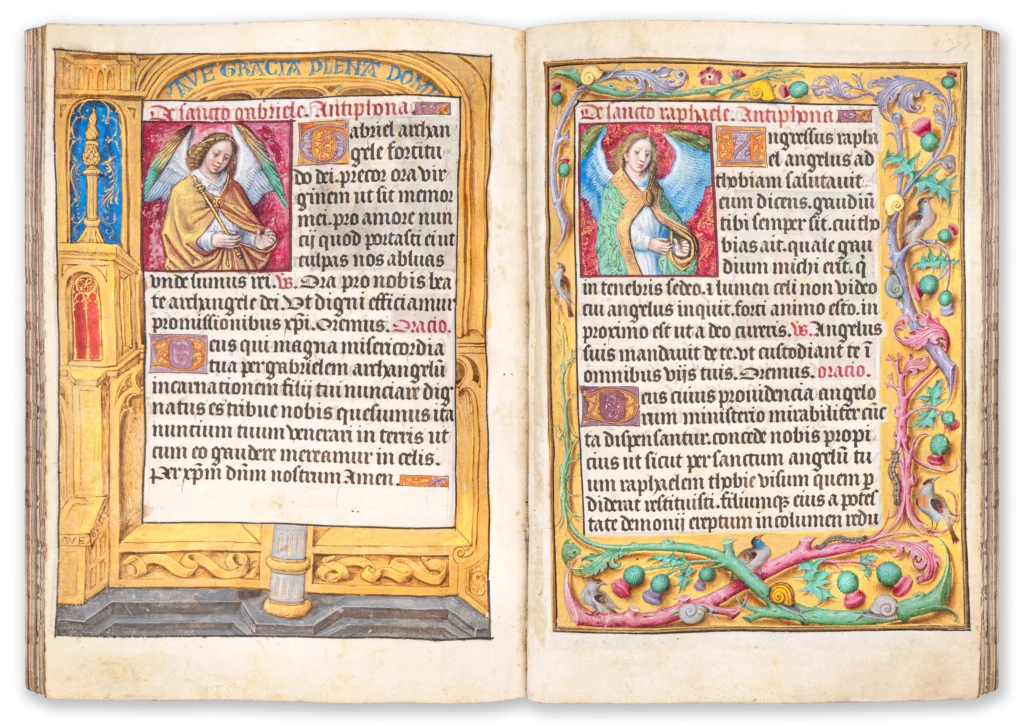 AVE GRACIA PLENA DOM
De sancto gabriele. Antiphona
Gabriel archan
gele fortitu
do dei. precor ora vir
ginem ut sit memor
mei. pro amore nun
cij quod portasti ei ut
culpas nos abluas
vnde sumus rei. V. Ora pro nobis bea
te archangele dei. Vt digni efficiamur
promissionibus xpi. Oremus. Oracio.
Deus qui magna misericordia
tua per gabrielem archangelū
incarnationem filij tui nunciare dig
natus es tribue nobis quesumus ita
nuncium tuum venerari in terris ut
cum eo gaudere mereamur in celis.
Per xpm dnm nostrum Amen.
AVE
De sancto raphaele. Antiphona
Ingressus rapha
el angelus ad
thobiam salutauit
eum dicens. gaudiū
tibi semper sit. cui tho
bias ait. quale gau
dium michi erit. q
in tenebris sedeo. & lumen celi non video
cui angelus inquit. forti animo esto. in
proximo est ut a deo cureris. V. Angelus
suis mandauit de te. vt custodiant te ī
omnibus vijs tuis. Oremus. oracio.
Deus cuius prouidencia angelo
rum ministerio mirabiliter cūc
ta dispensantur. concede nobis propi
cius ut sicut per sanctum angelū tu
um raphaelem thobie visum quem p
diderat restituisti. filiumq; eius a potes
tate demonij ereptum incolumen redu